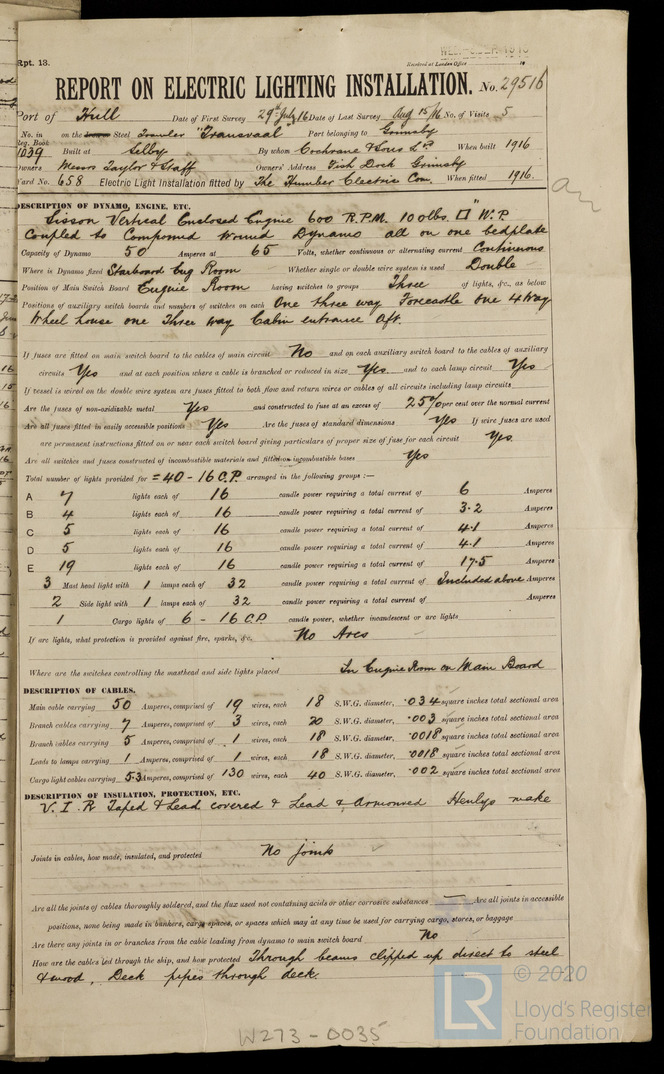 Rpt. 13.
Received at London Office
REPORT ON ELECTRIC LIGHTING INSTALLATION. No. 29516
Port of Hull Date of First Survey 29th July 16 Date of Last Survey Aug 15/16 No. of Visits 5
No. in Reg. Book 1039 on the Steel Trawler "Transvaal" Port belonging to Grimsby
Built at Selby By whom Cochrane & Sons Ld When built 1916
Owners Messrs Taylor & Staff Owners' Address Fish Dock Grimsby
Yard No. 658 Electric Light Installation fitted by The Humber Electric Com. When fitted 1916.
DESCRIPTION OF DYNAMO, ENGINE, ETC.
Sisson Vertical Enclosed Engine 600 R.P.M. 100lbs. □" W.P
Coupled to Compound Wound Dynamo all on one bedplate
Capacity of Dynamo 50 Amperes at 65 Volts, whether continuous or alternating current Continuous
Where is Dynamo fixed Starboard Eng Room Whether single or double wire system is used Double
Position of Main Switch Board Engine Room having switches to groups Three of lights, &c., as below
Positions of auxiliary switch boards and numbers of switches on each One three way Forecastle one 4 Way
Wheel house one Three Way Cabin entrance Aft.
If fuses are fitted on main switch board to the cables of main circuit No and on each auxiliary switch board to the cables of auxiliary
circuits Yes and at each position where a cable is branched or reduced in size Yes and to each lamp circuit Yes
If vessel is wired on the double wire system are fuses fitted to both flow and return wires or cables of all circuits including lamp circuits
Are the fuses of non-oxidizable metal Yes and constructed to fuse at an excess of 25% per cent over the normal current
Are all fuses fitted in easily accessible positions Yes Are the fuses of standard dimensions Yes If wire fuses are used
are permanent instructions fitted on or near each switch board giving particulars of proper size of fuse for each circuit Yes.
Are all switches and fuses constructed of incombustible materials and fitted on incombustible bases Yes
Total number of lights provided for = 40 - 16 C.P. arranged in the following groups :—
A 7 lights each of 16 candle power requiring a total current of 6 Amperes
B 4 lights each of 16 candle power requiring a total current of 3.2 Amperes
C 5 lights each of 16 candle power requiring a total current of 4.1 Amperes
D 5 lights each of 16 candle power requiring a total current of 4.1 Amperes
E 19 lights each of 16 candle power requiring a total current of 17.5 Amperes
3 Mast head light with 1 lamps each of 32 candle power requiring a total current of Included above Amperes
2 Side light with 1 lamps each of 32 candle power requiring a total current of Amperes
1 Cargo lights of 6 - 16 C.P. candle power, whether incandescent or arc lights
If arc lights, what protection is provided against fire, sparks, &c. No Arcs
Where are the switches controlling the masthead and side lights placed In Engine Room on Main Board
DESCRIPTION OF CABLES.
Main cable carrying 50 Amperes, comprised of 19 wires, each 18 S.W.G. diameter, .034 square inches total sectional area
Branch cables carrying 7 Amperes, comprised of 3 wires, each 20 S.W.G. diameter, .003 square inches total sectional area
Branch cables carrying 5 Amperes, comprised of 1 wires, each 18 S.W.G. diameter, .0018 square inches total sectional area
Leads to lamps carrying 1 Amperes, comprised of 1 wires, each 18 S.W.G. diameter, .0018 square inches total sectional area
Cargo light cables carrying 5.3 Amperes, comprised of 130 wires, each 40 S.W.G. diameter, .002 square inches total sectional area
DESCRIPTION OF INSULATION, PROTECTION, ETC.
V. I. R Taped & Lead covered & Lead & Armoured Henlys make
Joints in cables, how made, insulated, and protected No joints
Are all the joints of cables thoroughly soldered, and the flux used not containing acids or other corrosive substances — Are all joints in accessible
positions, none being made in bunkers, cargo spaces, or spaces which may at any time be used for carrying cargo, stores, or baggage
Are there any joints in or branches from the cable leading from dynamo to main switch board No
How are the cables led through the ship, and how protected Through beams clipped up direct to steel
& wood, Deck pipes through deck.
W273-0035
© 2020
LR
Lloyd's Register
Foundation